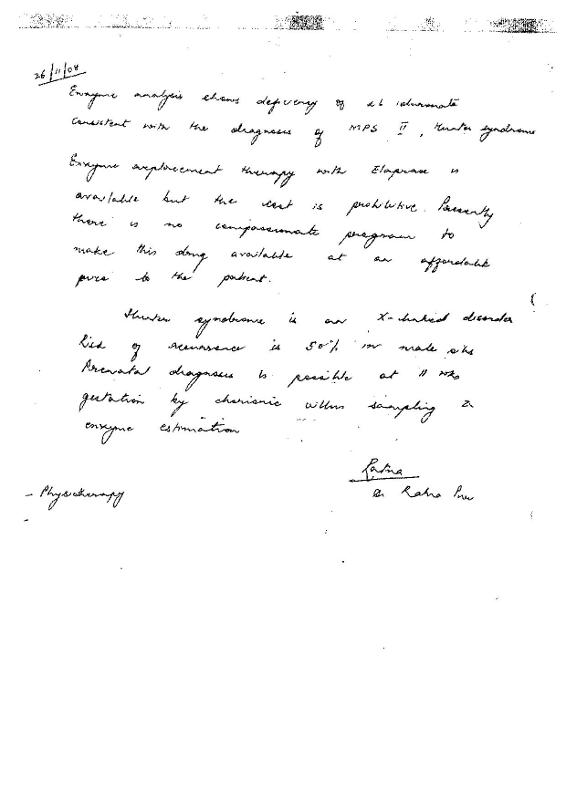 26/11/08
Enzyme analysis shows deficiency of iduronate
consistent with the diagnosis of MPS II, Hunter syndrome
Enzyme replacement therapy with Elaprase is
available but the cost is prohibitive. Presently
there is no compassionate program to
make this drug available at an affordable
price to the patient.
Hunter syndrome is an X-linked disorder
Risk of recurrence is 50% in male sibs
Prenatal diagnosis is possible at 11 wks
gestation by chorionic villus sampling &
enzyme estimation
Ratna
Dr Ratna Puri
- Physiotherapy